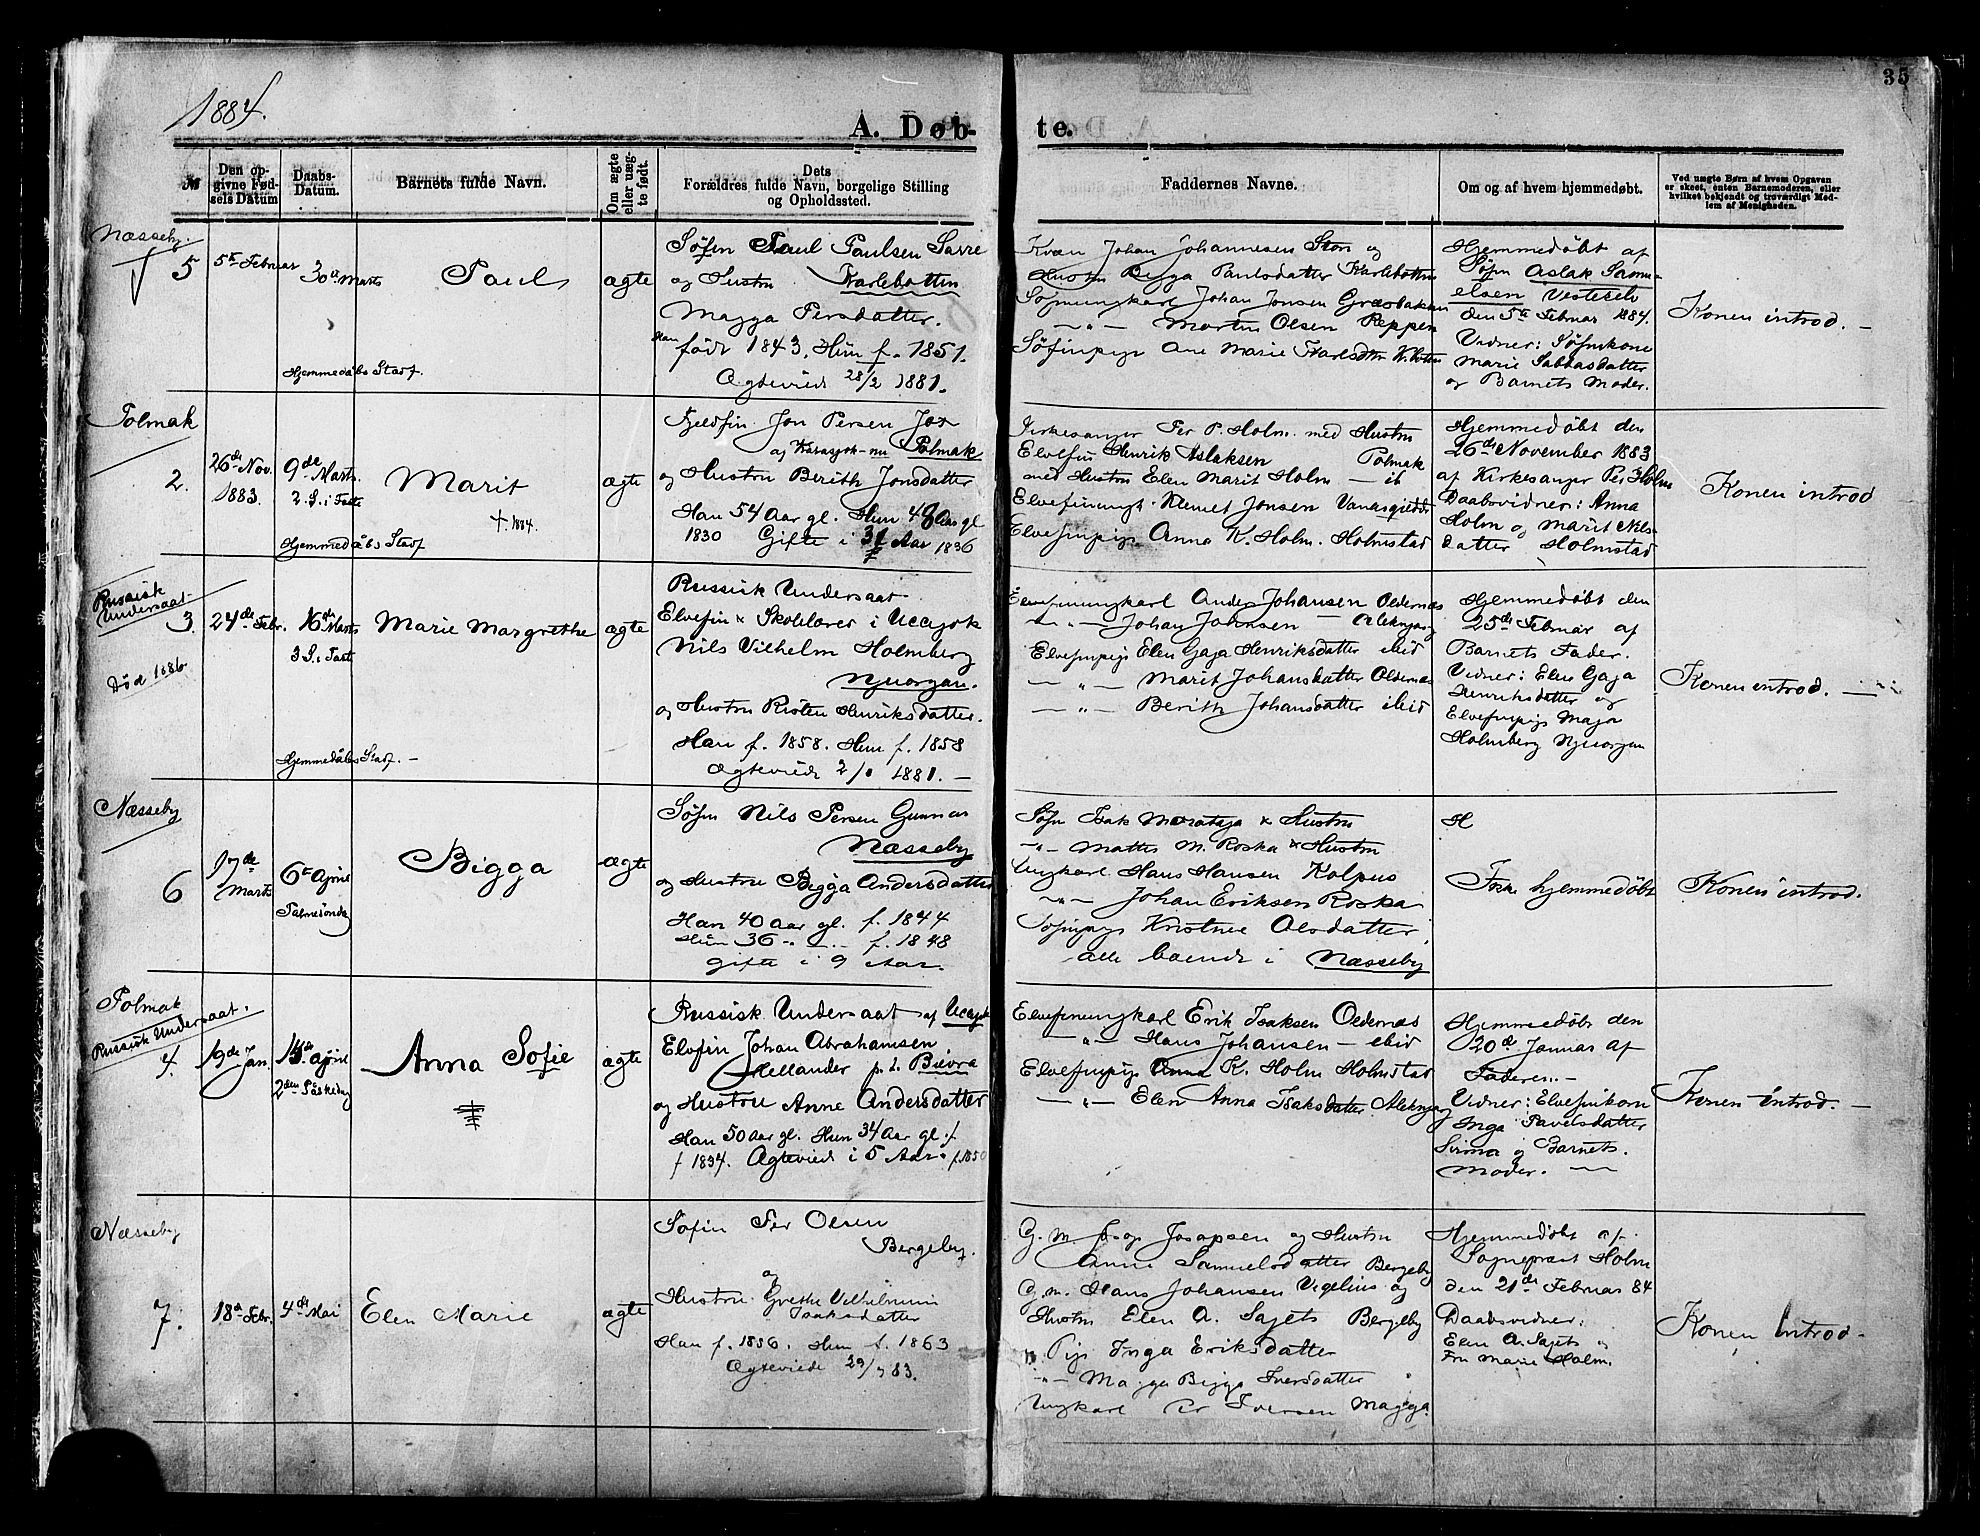 1884.
35
A. Døb-
te.
№
Den op-
givne Fød-
sels Datum
Daabs-
Datum.
Barnets fulde Navn.
Om ægte
eller uæg-
te født.
Dets
Forældres fulde Navn, borgelige Stilling
og Opholdssted.
Faddernes Navne.
Om og af hvem hjemmedøbt.
Ved uægte Børn af hvem Opgaven
er skeet, enten Barnemoderen, eller
hvilket bekjendt og troværdigt Med-
lem af Menigheden.
Næsseby
5
5te Februar
30te Marts
Hjemmedåbs Stadf.
Paul
ægte
Søfin Paul Paulsen Savre
og Hustru Karlebotten
Magga Persdatter.
Han født 1843. Hun f. 1851.
Ægteviede 28/2 1881.
Kvæn Johan Johannesen Stor og
Hustru Bigga Paulsdatter Karlebotten
Søfinungkarl Johan Jonsen Græsbakken
—„— Morten Olsen Reppen
Søfinpige Ane Marie Karlsdtr K.botten
Hjemmedøbt af
Søfin Aslak Samu-
elsen Vesterelv
den 5te Februar 1884.
Vidner: Søfinkone
Marie Sabbasdatter
og Barnets Moder.
Konen introd. —
Polmak
2.
26de Nov.
1883.
9de Marts.
2. S. i Faste
Hjemmedåbs Stadf
Marit
† 1884.
ægte
Fjeldfin Jon Persen Jox
af Karasjok - nu Polmak
og Hustru Berith Jonsdatter
Han 54 Aar gl. Hun 48 Aar gl
1830 Gifte i 31 Aar 1836
Kirkesanger Per P. Holm. med Hustru
Elvefin Henrik Aslaksen Polmak
med Hustru Elen Marit Holm — ib
Elvefinungk. Klemet Jonsen
Elvefinpige Anna K. Holm. Holmstad
Hjemmedøbt den
26de November 1883
af Kirkesanger Per Holm
Daabsvidner: Anna
Holm og Marit Nils-
datter Holmstad
Konen introd
Russisk
Undersaat.
3.
Død 1886
24de Febr.
16de Marts
3 S. i Faste
Hjemmedåbs Stadf. —
Marie Margrethe
ægte
Russisk Undersaat
Elvefin & Skolelærer i Utsjok
Nils Vilhelm Holmberg
Njuorgan.
og Hustru Risten Henriksdatter.
Han f. 1858. Hun f. 1858
Ægteviede 2/1 1881. —
Elvefinungkarl Anders Johansen Oldernæs
—„— Johan Johnsen — Aleknjarg
Elvefinpige Elen Gaja Henriksdatter ibid
—„— Marit Johansdatter Oldernæs
—„— Berith Johansdatter ibid
Hjemmedøbt den
25de Februar af
Barnets Fader.
Vidner: Elen Gaja
Henriksdatter og
Elvefinpige Maja
Holmberg Njuorgan
Konen introd. —
Næsseby
6
17de
Marts
6te April
Palmesøndag
Bigga
ægte
Søfin Nils Persen Gunnar
Næsseby
og Hustru Bigga Andersdatter
Han 40 Aar gl. f. 1844
Hun 36 -„- f. 1848
gifte i 9 Aar.
Søfin Isak Morataja & Hustru
-„- Mathis M. Roska & Hustru
Ungkarl Hans Hansen Kolpus
-„- Johan Eriksen Roska
Søfinpige Kristine Olsdatter
alle boende i Næsseby
H
Ikke hjemmedøbt
Konen introd.
Polmak
Russisk Undersaat.
4.
19de Jan.
14de April
2den Påskedag
Anna Sofie
ægte
Russisk Undersaat af Utsjok
Elvefin Johan Abrahamsen
Hellander p. t. Buvra
og Hustru Anne Andersdatter
Han 50 Aar gl. Hun 34 Aar gl.
f 1834. Ægteviede i 5 Aar. f. 1850
Elvefinungkarl Erik Isaksen Oldernæs
—„— Hans Johansen — ibid
Elvefinpige Anna K. Holm Holmstad
—„— Elen Anna Isaksdatter Aleknjarg
Hjemmedøbt den
20de Januar af
Faderen. —
Vidner: Elvefinkone
Inga Pavelsdatter
Sirma og Barnets
Moder. —
Konen introd. —
Næsseby
7.
18de Febr.
4de Mai
Elen Marie
ægte
Søfin Per Olsen
Bergeby.
og
Hustru Grethe Vilhelmine
Isaksdatter
Han f. 1856. Hun f. 1863
Ægteviede 29/7 83.
G. M. Josapsen og Hustru
Anne Samuelsdatter Bergeby
G. m. Hans Johansen Vigelius og
Hustru Elen A. Sajets Bergeby
Pige Inga Eriksdatter
-„- Magga Bigga Iversdatter
Ungkarl Per Iversen Magga.
Hjemmedøbt af
Sogneprest Holm
den 21de Februar 84
Daabsvidner:
Elen A. Sajets og
Fru Marie Holm.
Konen introd -